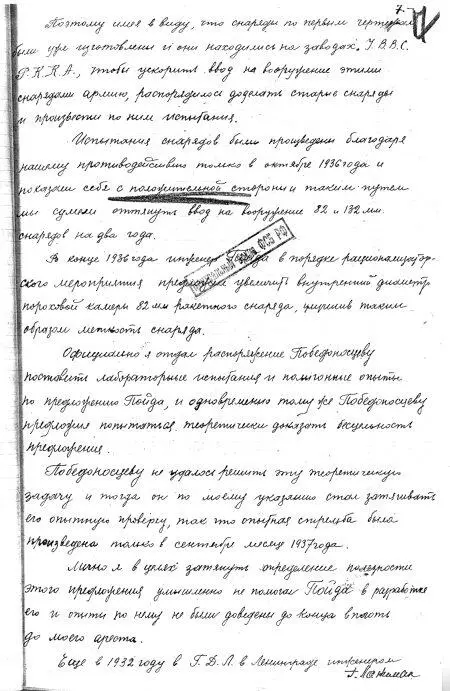 7.
Поэтому имея в виду, что снаряды по первым чертежам
были уже изготовлены и они находились на заводах. У.В.В.С.
Р.К.К.А., чтобы ускорить ввод на вооружение этими
снарядами армию, распорядилось доделать старые снаряды
и произвести по ним испытания.
Испытания снарядов были произведены благодаря
нашему противодействию только в октябре 1936 года и
показали себя с положительной стороны и таким путем
мы сумели оттянуть ввод на вооружение 82 и 132 мм.
снарядов на два года.
В конце 1936 года инженер в порядке рационализаторс-
кого мероприятия предложил увеличить внутренний диаметр
пороховой камеры 82 мм ракетного снаряда, улучшив таким
образом меткость снаряда.
Официально я отдал распоряжение Победоносцеву
поставить лабораторные испытания и полигонные опыты
по предложению Пойда, и одновременно тому же Победоносцеву
предложил попытаться теоретически доказать
предложения.
Победоносцеву не удалось решить эту теоретическую
задачу и тогда он по моему указанию стал затягивать
его опытную проверку, так что опытная стрельба была
произведена только в сентябре месяце 1937 года.
Лично я в целях затянуть определение полезности
этого предложения умышленно не помогал Пойда в разработке
его и опыты по нему не были доведены до конца вплоть
до моего ареста.
Еще в 1932 году в Г.Д.Л. в Ленинграде инженером
Г. Лангемак
ФСБ РФ